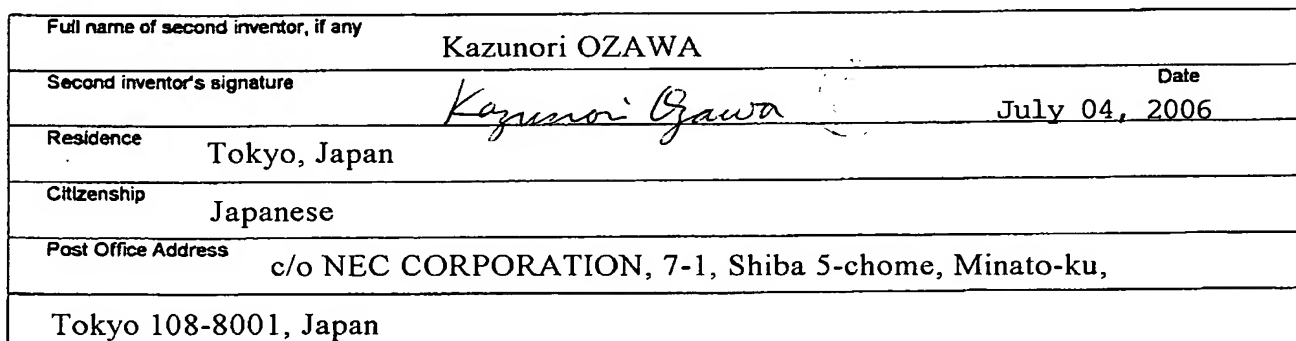 Full name of second inventor, if any
Kazunori OZAWA
Second inventor's signature
Kazunori Ozawa
Date
July 04, 2006
Residence
Tokyo, Japan
Citizenship
Japanese
Post Office Address
c/o NEC CORPORATION, 7-1, Shiba 5-chome, Minato-ku,
Tokyo 108-8001, Japan